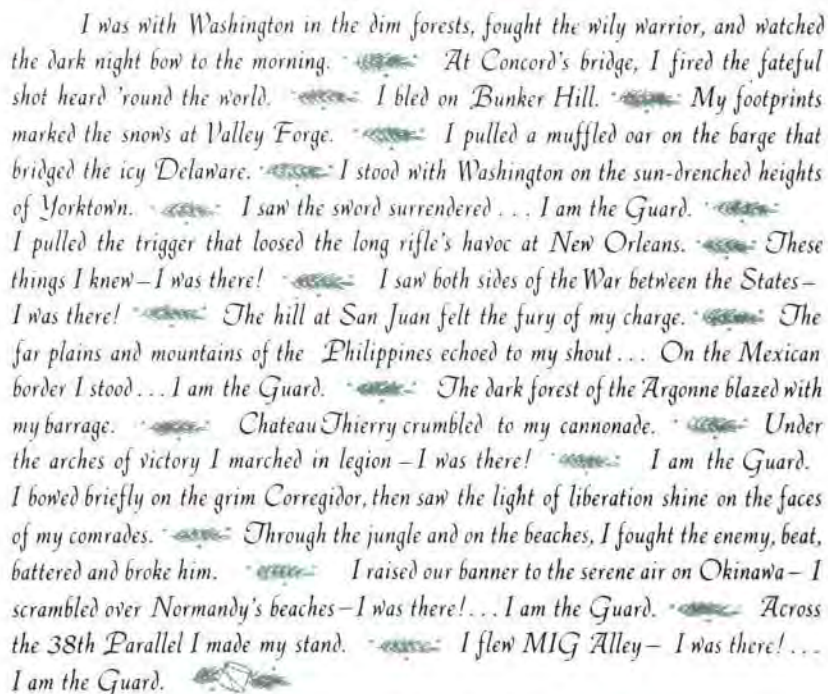 I was with Washington in the dim forests, fought the wily warrior, and watched
the dark night bow to the morning. At Concord's bridge, I fired the fateful
shot heard 'round the world. I bled on Bunker Hill. My footprints
marked the snows at Valley Forge. I pulled a muffled oar on the barge that
bridged the icy Delaware. I stood with Washington on the sun-drenched heights
of Yorktown. I saw the sword surrendered . . . I am the Guard.
I pulled the trigger that loosed the long rifle's havoc at New Orleans. These
things I knew–I was there! I saw both sides of the War between the States–
I was there! The hill at San Juan felt the fury of my charge. The
far plains and mountains of the Philippines echoed to my shout . . . On the Mexican
border I stood . . . I am the Guard. The dark forest of the Argonne blazed with
my barrage. Chateau Thierry crumbled to my cannonade. Under
the arches of victory I marched in legion – I was there! I am the Guard.
I bowed briefly on the grim Corregidor, then saw the light of liberation shine on the faces
of my comrades. Through the jungle and on the beaches, I fought the enemy, beat,
battered and broke him. I raised our banner to the serene air on Okinawa – I
scrambled over Normandy's beaches–I was there! . . . I am the Guard. Across
the 38th Parallel I made my stand. I flew MIG Alley – I was there! . . .
I am the Guard.